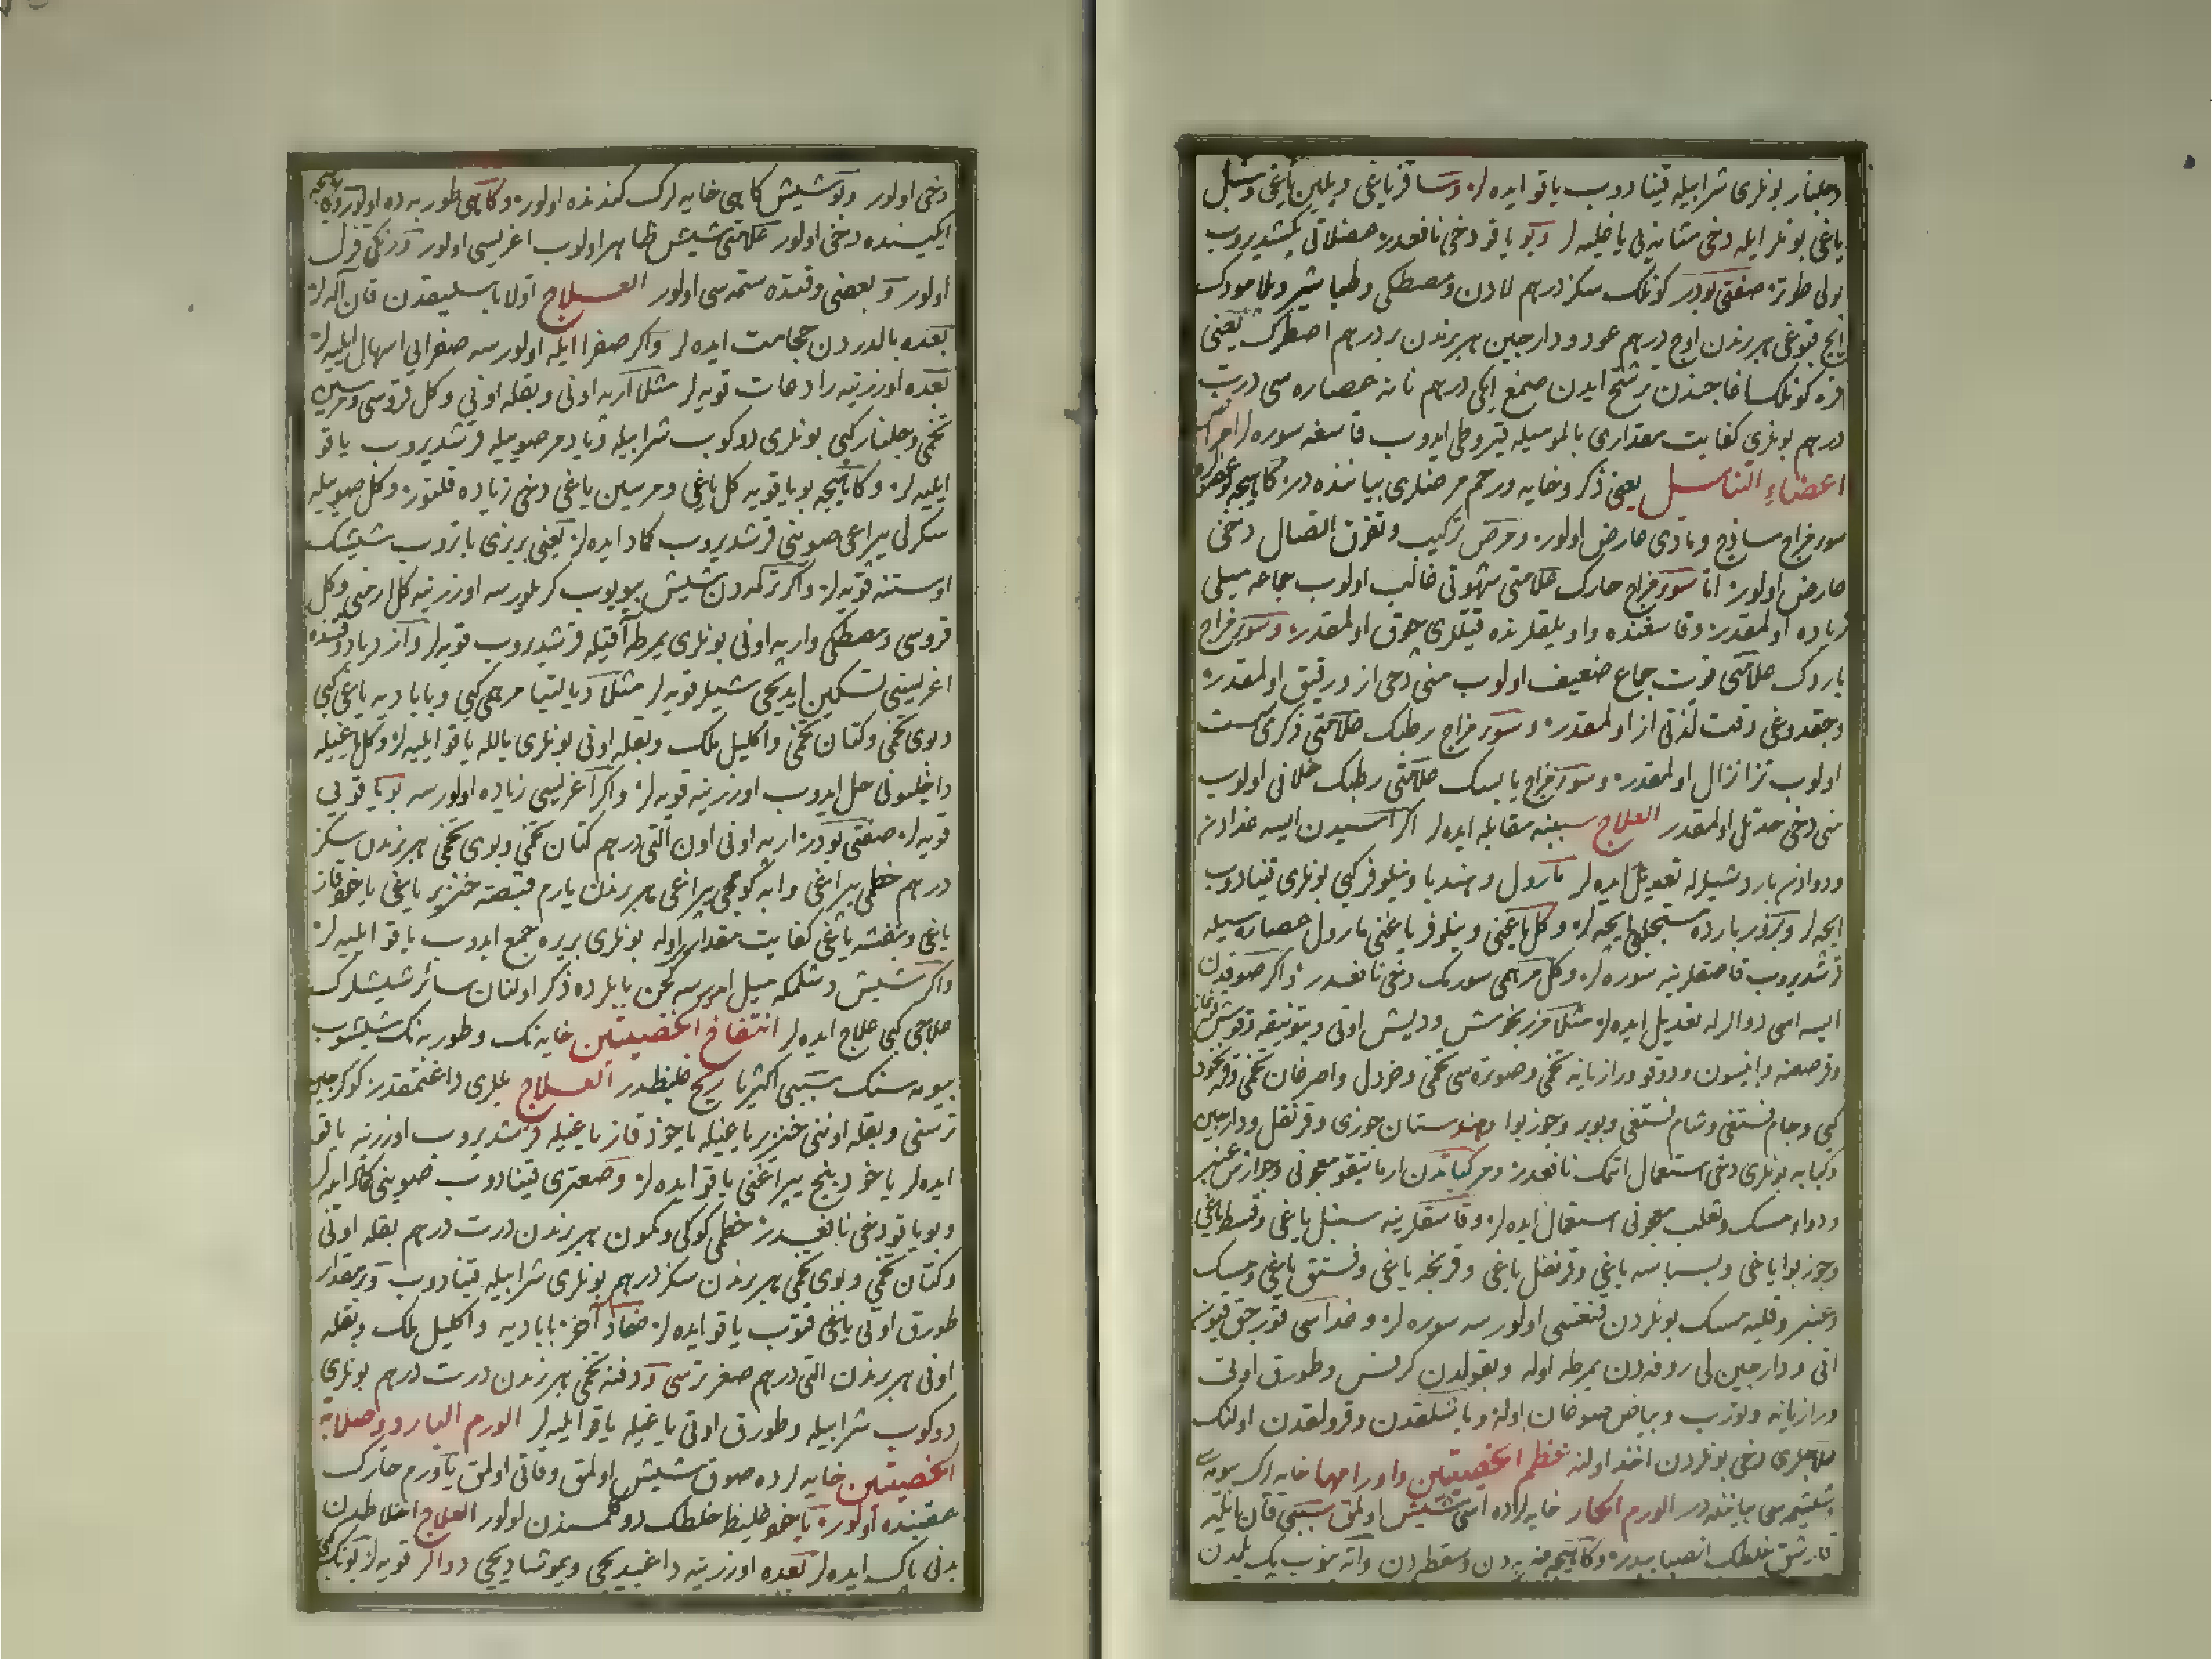 وجلنار بونلری شرابیله قینادوب یاقو ایده لر وسافر یاغی ویلمین یاغی وسنبل
یاغی بونلر ایله دخی مثانه یی یاغلیه لر وبو یاقو دخی نافعدر عضلاتی پکشدیروب
بولی طوتر صفتی بودر کونلک سکز درهم لادن ومصطکی وطباشیر وبلامودک
ایچ قبوغی هر برندن اوچ درهم عود ودارچین هر برندن بر درهم اصطرک یعنی
قره کونلک اغاجندن ترشح ایدن صمغ ایکی درهم نانه عصاره سی درت
درهم بونلری کفایت مقداری بالمومیله قیروطی ایدوب قاسغه سوره لر امراض
اعضاء التناسل یعنی ذکر وخایه ورحم مرضلری بیاننده در کاهیجه
سوء مزاج ساذج ومادی عارض اولور ومرض ترکیب وتفرق اتصال دخی
عارض اولور اما سوء مزاج حارک علامتی شهوتی غالب اولوب جماعه میلی
زیاده اولمقدر وقاسغنده واویلقلرنده قیللری چوق اولمقدر وسوء مزاج
باردک علامتی قوت جماع ضعیف اولوب منی دخی از ورقیق اولمقدر
وچقدوغی وقت لذتی از اولمقدر وسوء مزاج رطبک علامتی ذکری سست
اولوب تز انزال اولمقدر وسوء مزاج یابسک علامتی رطبک خلافی اولوب
منی دخی معتدل اولمقدر العلاج سببنه مقابله ایده لر اکر اسیدن ایسه غدادن
ودوادن بارد شیلرله تعدیل ایده لر مارول وهندبا ونیلوفر کبی بونلری قینادوب
ایچه لر وبزور بارده سکنجبین ایچه لر وکل یاغنی ونیلوفر یاغنی مارول عصاره سیله
قرشدیروب قاصقلرینه سوره لر وکل مرهمی سورمک دخی نافعدر واکر صوقدن
ایسه اسی دوالرله تعدیل ایده لر مثلا مرزنجوش ودیش اوتی
وقرصعنه وانیسون ودوقو ورازیانه تخمی وصوتره سی تخمی وخردل
کبی وجام فستقی وشام فستقی وبوبر وجوزبوا وهندوستان جوزی وقرنفل ودارچین
وکبابه بونلری دخی استعمال اتمک نافعدر ومرکباتدن
ودواء مسک وثعلب معجونی استعمال ایده لر وقاسقلرینه سنبل یاغی وقسط یاغی
وجوزبوا یاغی وبسباسه یاغی وقرنفل یاغی وقرنجه یاغی وفستق یاغی ومسک
وعنبر وقلیه مسک بونلردن قنغسی اولورسه سوره لر وغداسی
اتی ودارچین لی رفدن یمرطه اوله وبقولدن کرفس وطورق اوتی
ورازیانه وترب وبیاض صوغان اوله
علاجلری دخی بونلردن اخذ اولنه عظم الخصیتین واورامها خایه لرک بیومسی
وشیشمه سی بیاننده در الورم الحار خایه لرده اسی شیش اولمق سببی قان ایله
قارشق خلطک انصبابیدر وکاهیجه ضربه دن وسقطه دن وآته چوق بنمکدن
دخی اولور وبو شیش کاهی خایه لرک کندنده اولور وکاهی طوربه ده اولور وکاهیجه
ایکیسنده دخی اولور علامتی شیش ظاهر اولوب اغریسی اولور ورنکی قزل
اولور وبعضی وقتده ستمه سی اولور العلاج اولا باسلیقدن قان آله لر
بعده بالدردن حجامت ایده لر واکر صفرا ایله اولورسه صفرایی اسهال ایلیه لر
بعده اوزرینه رادعات قویه لر مثلا اریه اونی وبقله اونی وکل قروسی ومرسین
تخمی وجلنار کبی بونلری دوکوب شرابیله ویا دمر صوییله قرشدیروب یاقو
ایلیه لر وکاهیجه بو یاقویه کل یاغی ومرسین یاغی دخی زیاده قلنور وکل صوییله
سکرلی یپراغی صوینی قرشدیروب کماد ایده لر یعنی بزیزی باتروب شیشک
اوستنه قویه لر واکر تکردن شیش بیویوب کریلورسه اوزرینه کل ارمنی وکل
قروسی ومصطکی واریه اونی بونلری یمرطه آقیله قرشدیروب قویه لر
اغریسنی تسکین ایدیجی شیلر قویه لر مثلا دیالتیا مرهمی کبی وبابادیه یاغی کبی
وبوی تخمی وکتان تخمی واکلیل ملک وبقله اونی بونلری بالله یاقو ایلیه لر وکل یاغیله
داخلیونی حل ایدوب اوزرینه قویه لر واکر آغریسی زیاده اولورسه بو یاقویی
قویه لر صفتی بودر اریه اونی اون التی درهم کتان تخمی وبوی تخمی هر برندن سکز
درهم خطمی یپراغی وابه کومجی یپراغی هر برندن یارم قبضه خنزیر یاغی یاخود قاز
یاغی وبنفشه یاغی کفایت مقداری اوله بونلری بریره جمع ایدوب یاقو ایلیه لر
واکر شیش دشلمکه میل ایدرسه کچن بابلرده ذکر اولنان سائر شیشلرک
علاجی کبی علاج ایده لر انتفاخ الخصیتین خایه نک وطوربه نک شیشوب
بیومه سنک سببی اکثریا ریح غلیظدر العلاج یللری داغتمقدر
ترسنی وبقله اونی خنزیر یاغیله یاخود قاز یاغیله قرشدیروب اوزرینه یاقو
ایده لر یاخود بنج یپراغنی یاقو ایده لر وصعتری قینادوب صوینی کماد ایده لر
وبو یاقو دخی نافعدر خطمی کوکی وکمون هر برندن درت درهم بقله اونی
وکتان تخمی وبوی تخمی هر برندن سکز درهم بونلری شرابیله قینادوب وبر مقدار
طورق اوتی یاغی قتوب یاقو ایده لر ضماد آخر بابادیه واکلیل ملک وبقله
اونی هر برندن التی درهم صغر ترسی ودفنه تخمی هر برندن درت درهم بونلری
دوکوب شرابیله وطورق اوتی یاغیله یاقو ایلیه لر الورم البارد وصلابة
الخصیتین خایه لرده صوق شیش اولمق وقاتی اولمق یا ورم حارک
عقبنده اولور یاخود غلیظ خلطک دوکلمسندن اولور العلاج اخلاطدن
بدنی پاک ایده لر بعده اوزرینه داغیدیجی ویموشادیجی دوالر قویه لر